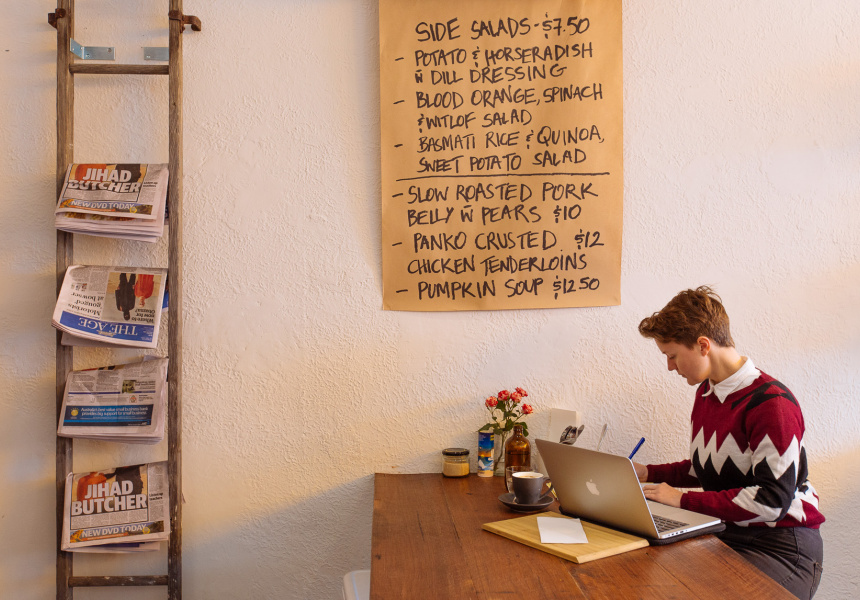 SIDE SALADS - $7.50
- POTATO & HORSERADISH
W DILL DRESSING
- BLOOD ORANGE, SPINACH
& WITLOF SALAD
- BASMATI RICE & QUINOA,
SWEET POTATO SALAD
- SLOW ROASTED PORK
BELLY W PEARS $10
- PANKO CRUSTED $12
CHICKEN TENDERLOINS
- PUMPKIN SOUP $12.50
JIHAD
BUTCHER
NEW DVD TODAY
THE AGE
Motorists
gouged
at bowser
JIHAD
BUTCHER
NEW DVD TODAY